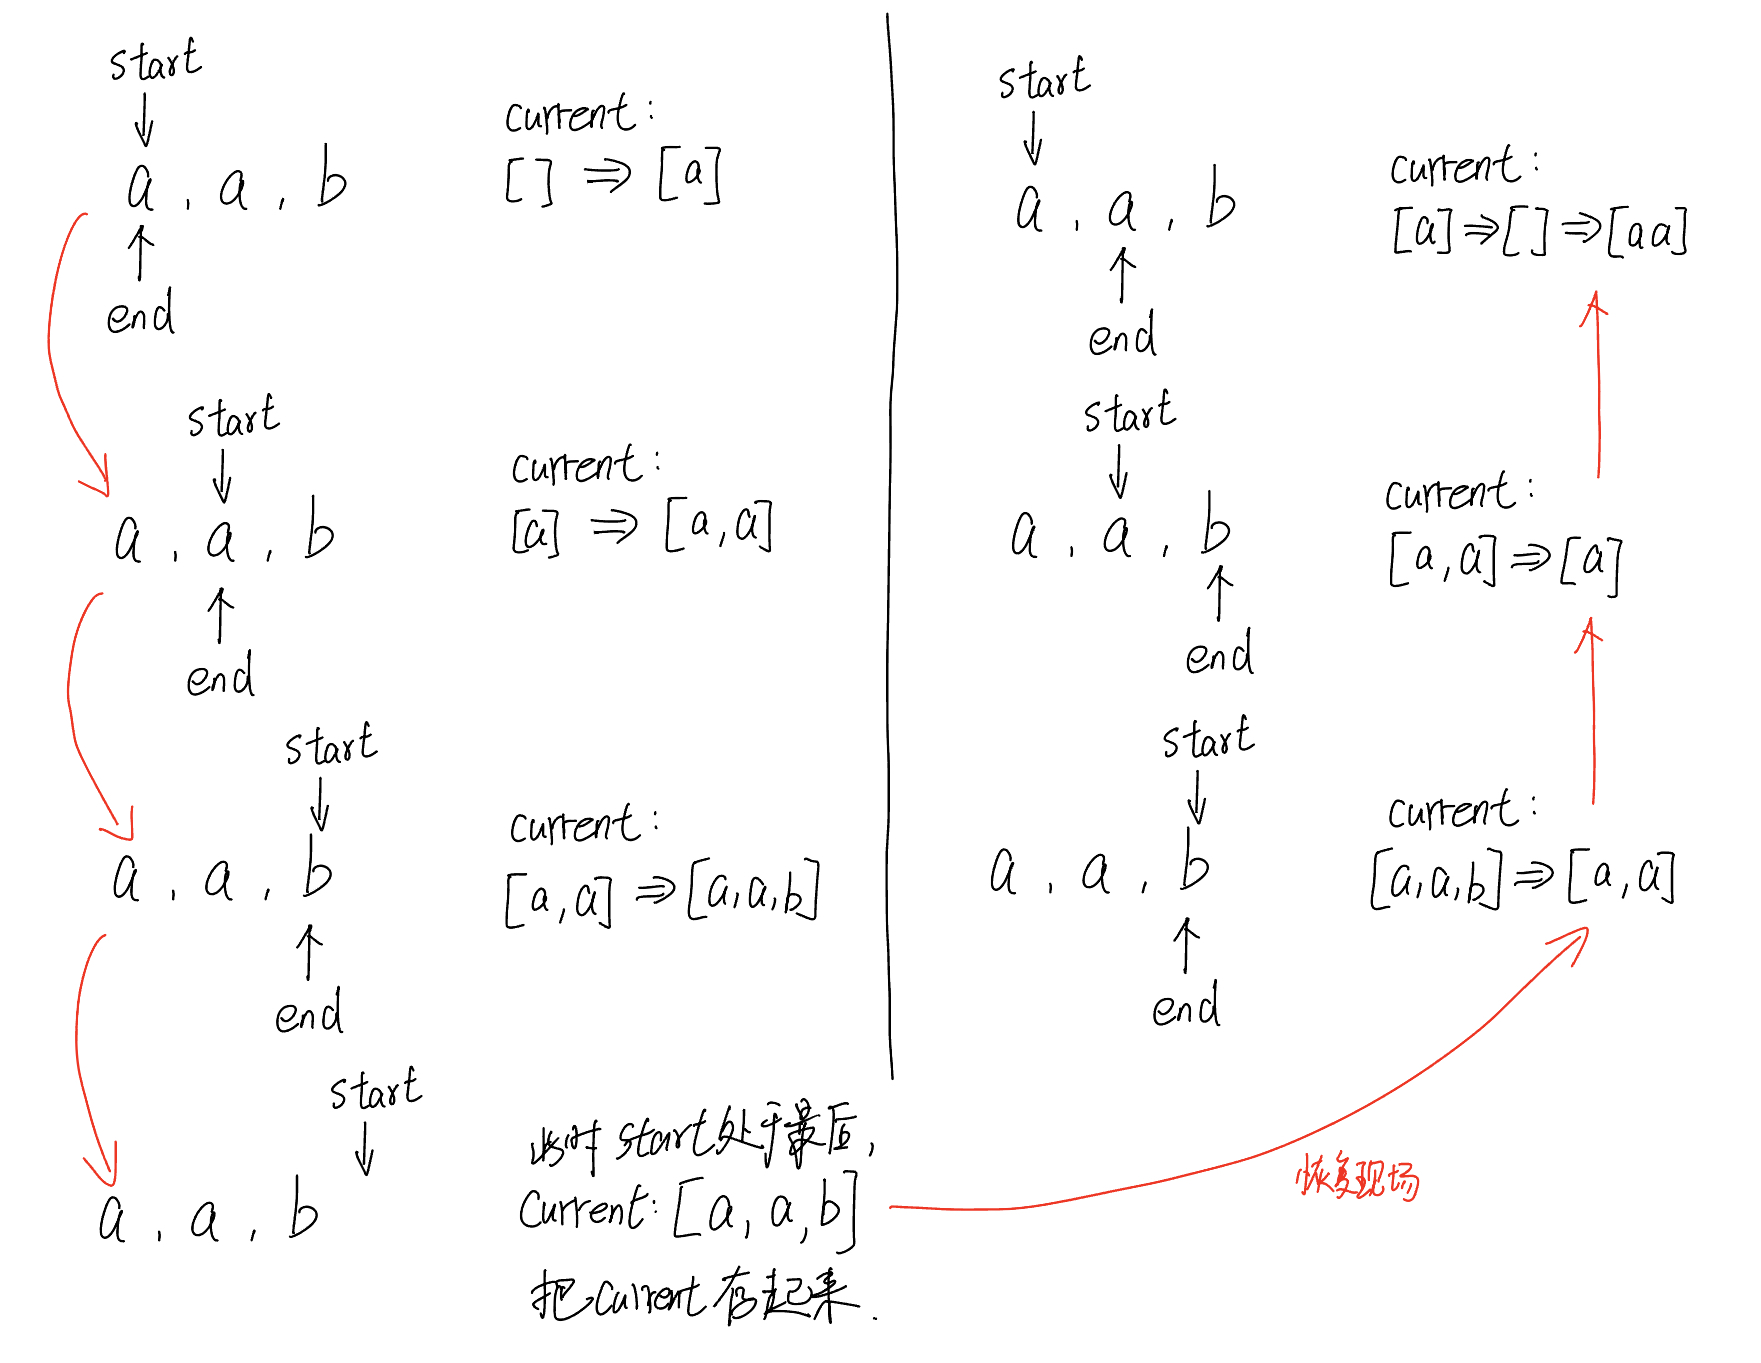 start
a , a , b
end
current:
[ ] ⇒ [a]
start
a , a , b
end
current:
[a] ⇒ [a,a]
start
a , a , b
end
current:
[a,a] ⇒ [a,a,b]
start
a , a , b
此时 start处于最后,
Current: [a, a, b]
把Current 存起来.
start
a , a , b
end
current:
[a] ⇒ [ ] ⇒ [aa]
start
a , a , b
end
current:
[a,a] ⇒ [a]
start
a , a , b
end
current:
[a,a,b] ⇒ [a,a]
恢复现场